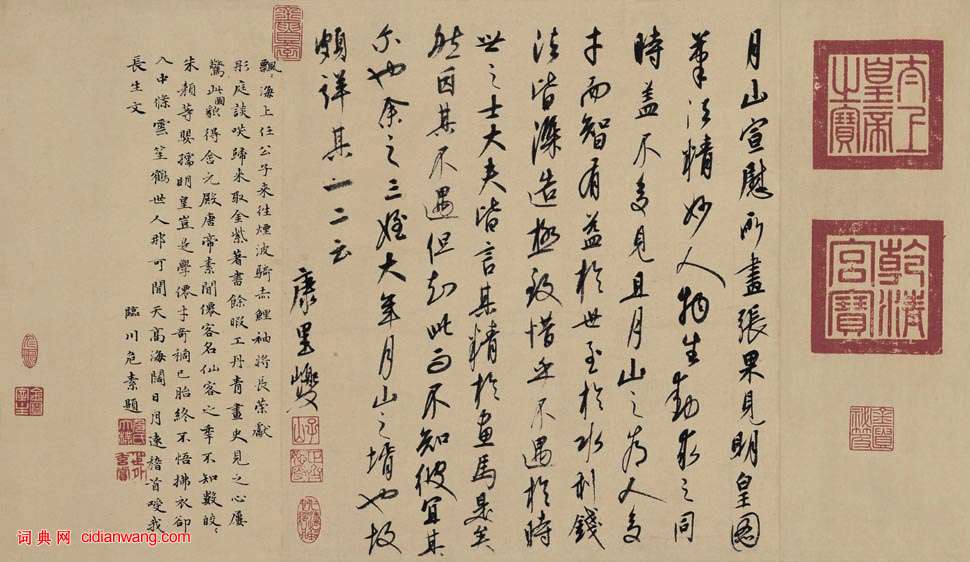 太上皇帝之寶
乾清宮寶
月山宣慰所畫張果見明皇圖
筆法精妙人物生動求之同
時蓋不多見且月山之為人多
才而智有益於世至於水利錢
法皆深造極致惜乎不遇於時
世之士大夫皆言其精於畫馬是矣
然因其不遇但知此而不知彼宜其
尒也余之三姪大年月山之壻也故
頗詳其一二云
康里巙
飄〻海上任公子來往煙波騎赤鯉袖將長策獻
彤庭談咲歸來取金紫著書餘暇工丹青畫史見之心屢
驚此圖貌得含元殿唐帝素聞僊客名仙客之年不知數皎〻
朱顏等嬰孺明皇豈是學僊才奇禍已胎終不悟拂衣卻
入中條雲笙鶴世人那可聞天高海闊日月遠稽首噯我
長生文
臨川危素題
词典网 cidianwang.com